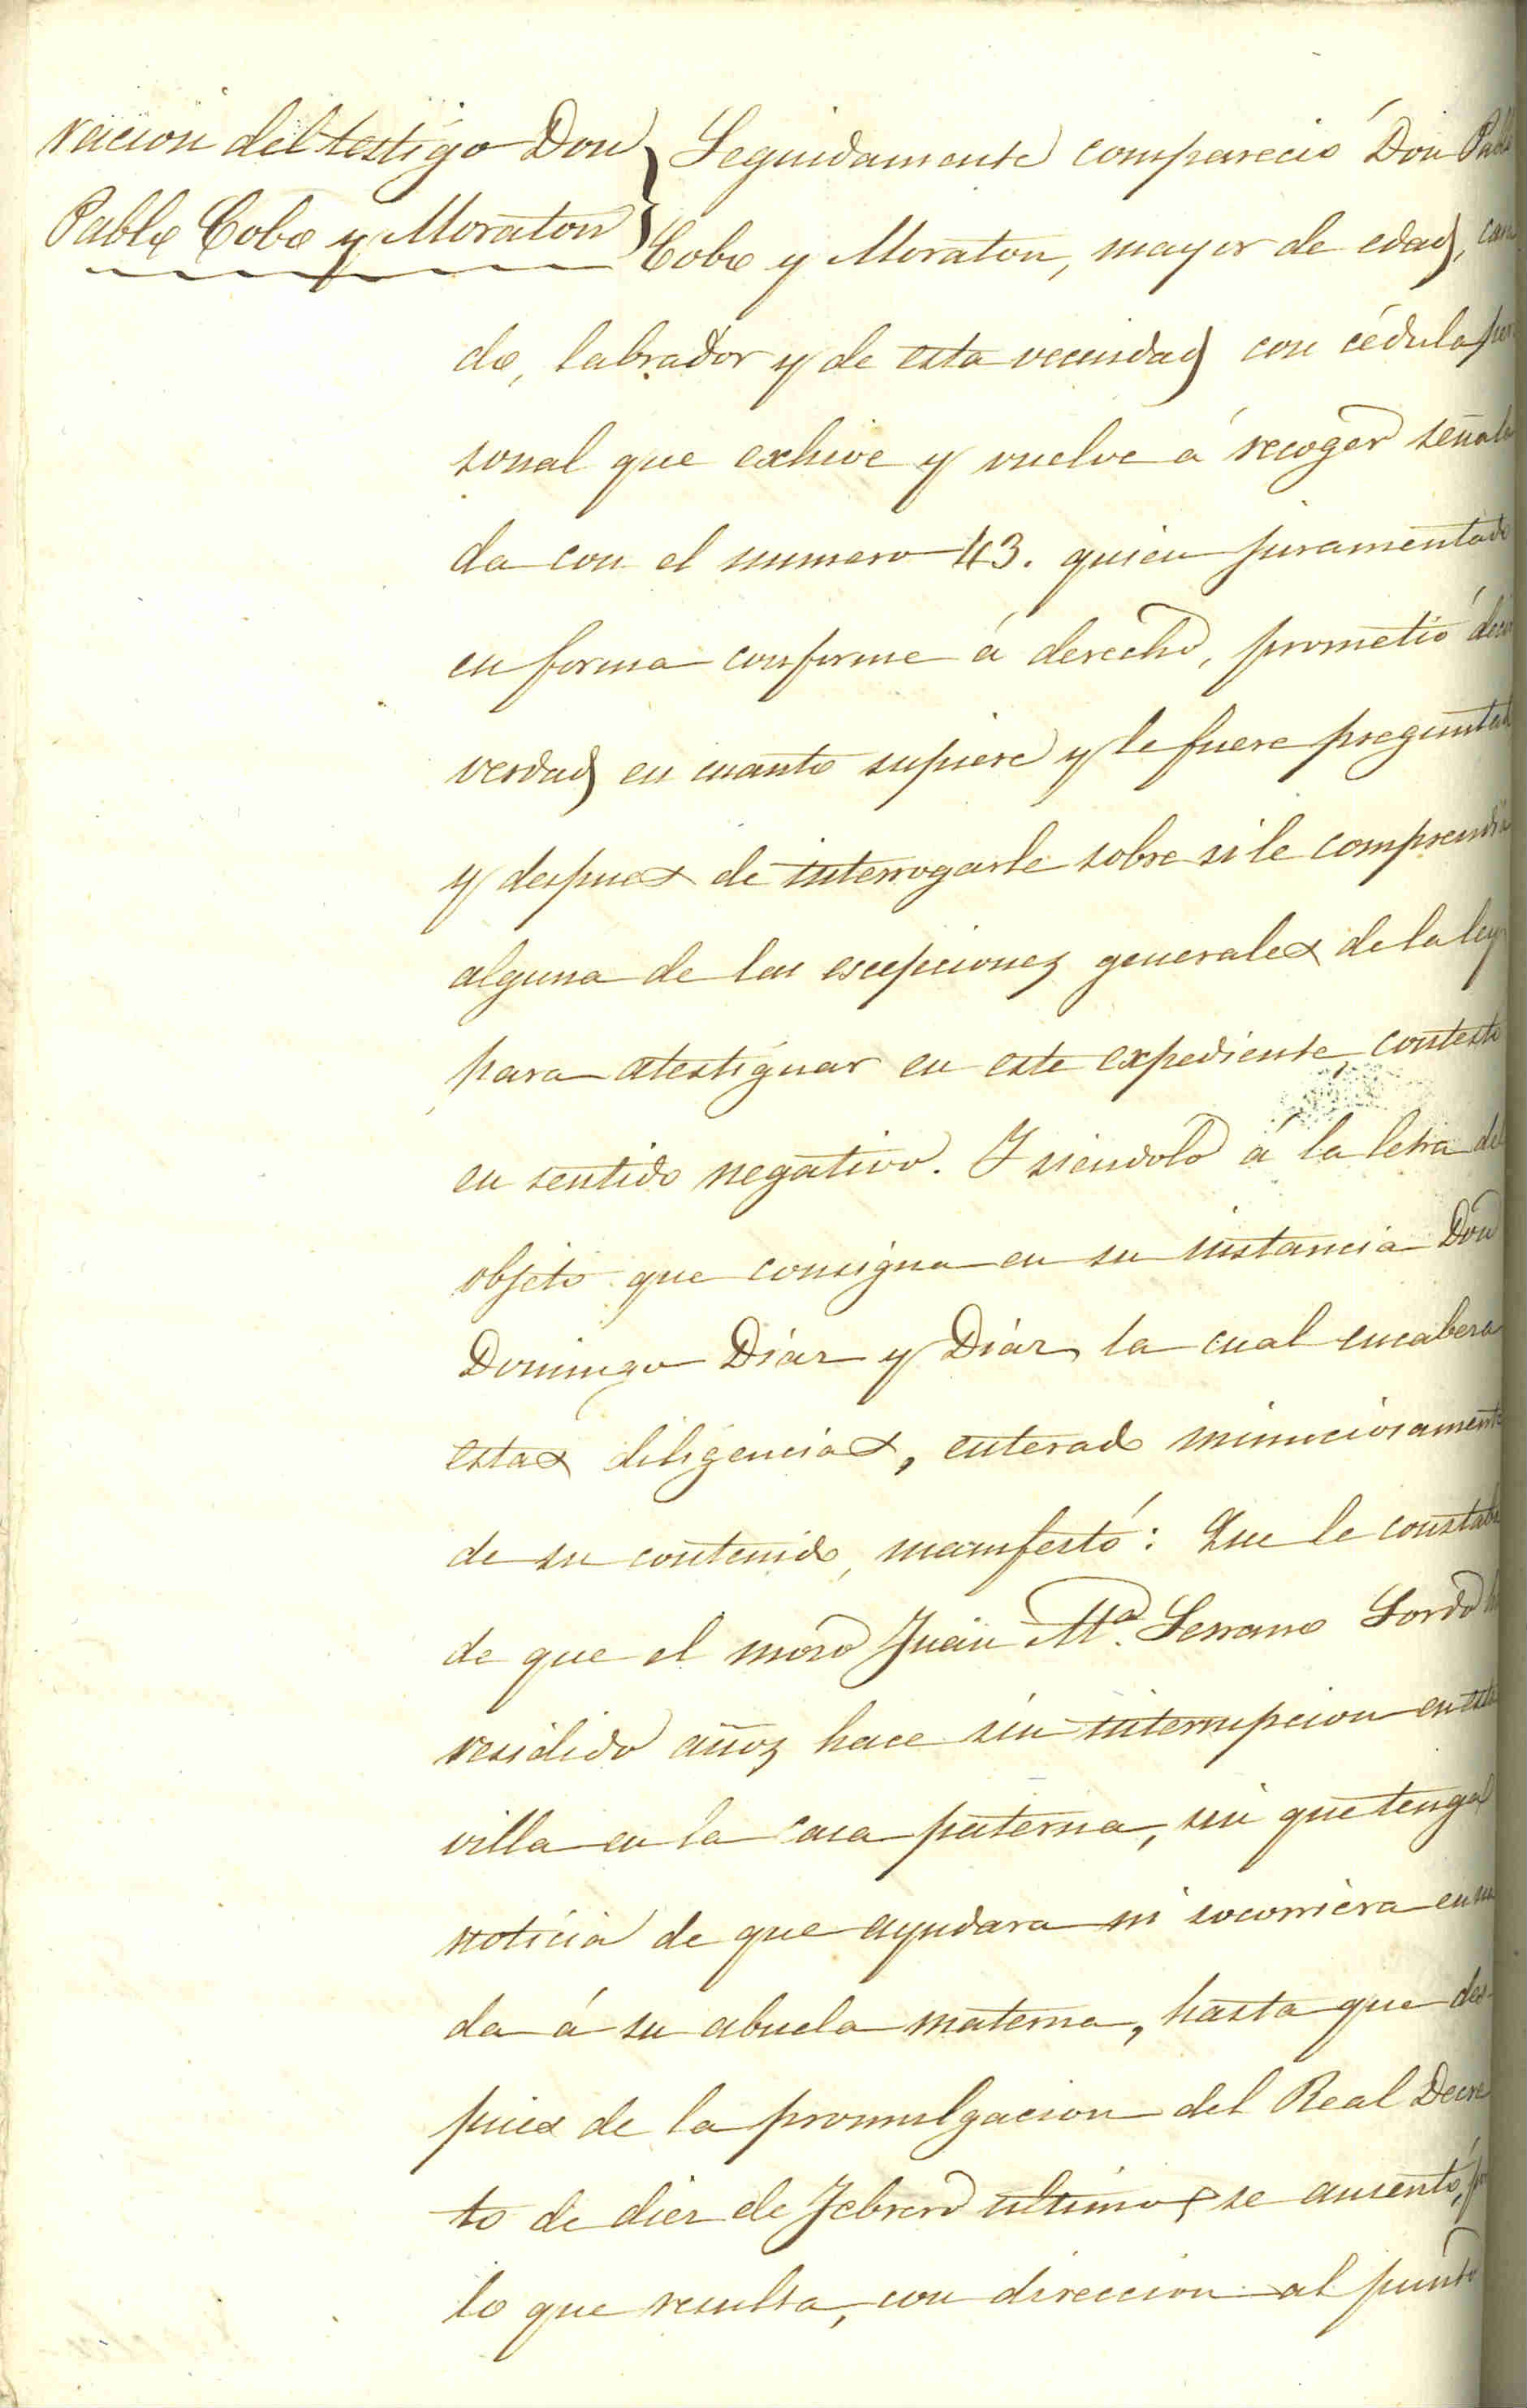 racion del testigo Don
Pablo Cobo y Moraton
Seguidamente compareció Don Pablo
Cobo y Moraton, mayor de edad, casa
do, labrador y de esta vecindad con cédula per
sonal que exhive y vuelve á recoger señala
da con el numero 43. quien juramentado
en forma conforme á derecho, prometió decir
verdad en cuanto supiere y le fuere preguntado
y despues de interrogarle sobre si le comprendia
alguna de las escepciones generales de la ley
para atestiguar en este expediente, contestó
en sentido negativo. Y siendolo á la letra del
objeto que consigna en su instancia Don
Domingo Díaz y Díaz, la cual encabeza
estas diligencias, enterado minuciosamente
de su contenido, manifestó: Que le constaba
de que el mozo Juan Mª. Serrano Sordo ha
residido años hace sin interrupcion en esta
villa en la casa paterna, sin que tenga
noticia de que ayudara ni socorriera en na
da á su abuela materna, hasta que des-
pues de la promulgacion del Real Decre
to de diez de Febrero último, se ausentó, por
lo que resulta, con direccion al punto